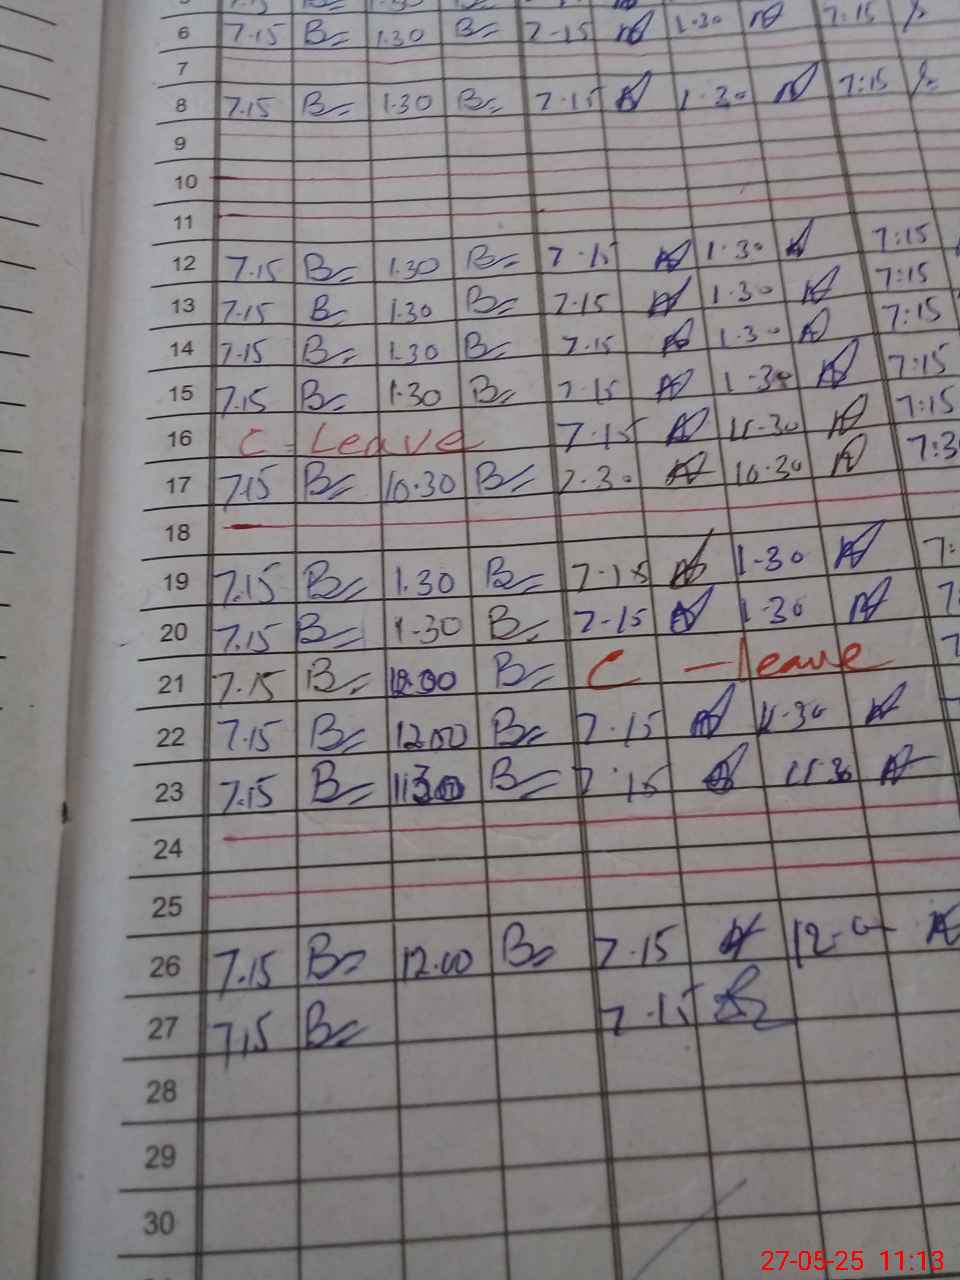 6 7.15 B 1.30 B 7.15 1.30 7:15
7
8 7.15 B 1.30 B 7.15 1.30 7:15
9
10
11
12 7.15 B 1.30 B 7.15 1.30 7:15
13 7.15 B 1.30 B 7.15 1.30 7:15
14 7.15 B 1.30 B 7.15 1.30 7:15
15 7.15 B 1.30 B 7.15 1.30 7:15
16 C - Leave 7.15 11.30 7:15
17 7.15 B 10.30 B 7.30 10.30 7:3
18
19 7.15 B 1.30 B 7.15 1.30 7:
20 7.15 B 1.30 B 7.15 1.30 7
21 7.15 B B C - leave 7
22 7.15 B 12.00 B 7.15 11.30
23 7.15 B 1130 B 7.15 11.30
24
25
26 7.15 B 12.00 B 7.15
27 7.15 B 7.15
28
29
30
27-05-25 11:13